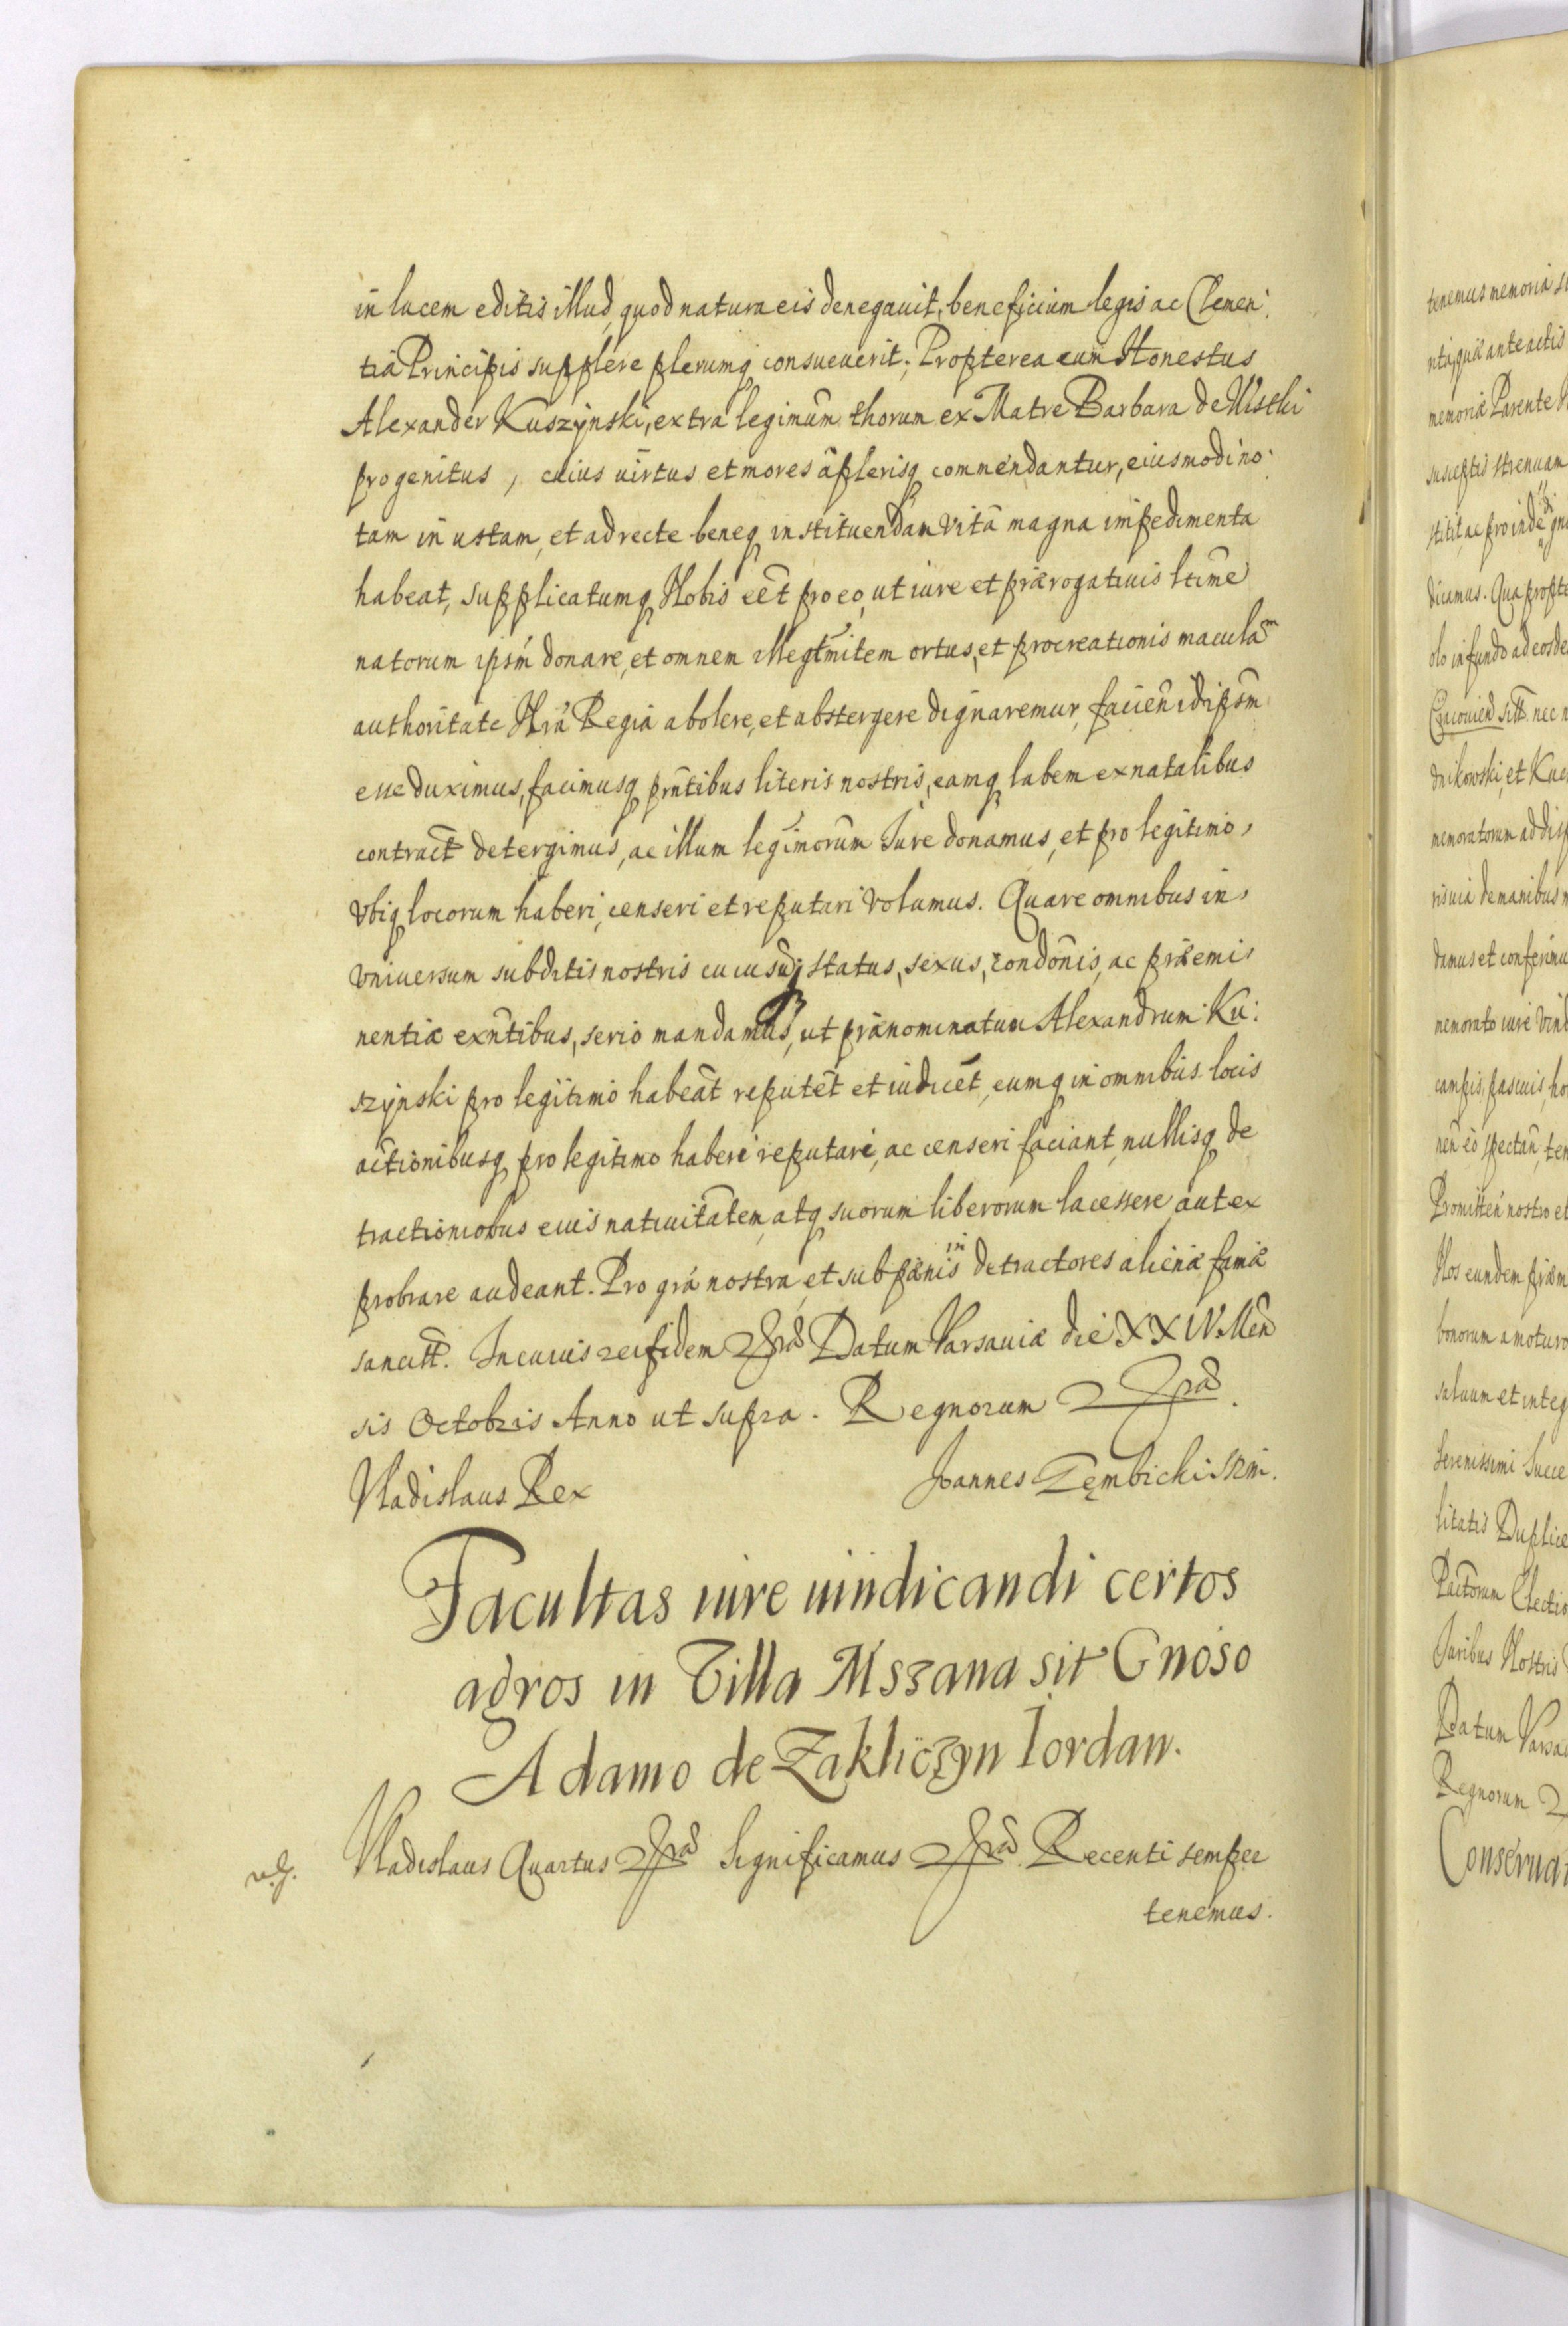 in lucem editis illud, quod natura eis denegauit, beneficium legis ac Clemen:
tia Principis supplere plerumq consueuerit; Propterea cum Honestus
Alexander Kuszynski, extra legimum thorum ex Matre Barbara de Wistki
progenitus, cuius uirtus et mores a plerisq commendantur, eiusmodi no:
tam inustam, et ad recte beneq instituendam vitã magna impedimenta
habeat, supplicatumq Nobis eẽt pro eo, ut iure et prærogatiuis ltime
natorum ipsm donare, et omnem illegtmitem ortus, et procreationis maculam
authoritate Nrã Regia abolere, et abstergere dignaremur, facien̄ id ipsm
esse duximus, facimusq pñtibus literis nostris, eamq labem ex natalibus
contract̃ detergimus, ac illum legimorum Iure donamus, et pro legitimo,
vbiq locorum haberi, censeri et reputari volumus. Quare omnibus in,
vniuersum subditis nostris cuiusuis status, sexus, condonis, ac præemi
nentiæ exñtibus, serio mandamus, ut prænominatum Alexandrum Ku:
szynski pro legitimo habeãt reputẽt et iudicẽt, eumq in omnibus locis
actionibusq pro legitimo haberi reputari, ac censeri faciant, nullisq de
tractionibus eius natiuitatem, atq suorum liberorum lacessere aut ex
probrare audeant. Pro grã nostra, et sub pænis in detractores alienæ famæ
sancitt. In cuius rei fidem Datum Varsauiæ die XXIV Men
sis Octobris Anno ut supra. Regnorum
Vladislaus Rex Joannes Gembicki
Facultas iure uindicandi certos
agros in Villa Mszana sit Gnoso
Adamo de Zakliczyn Iordan.
Vladislaus Quartus Significamus Recenti semper
tenemus.
tenemus memoria
memoriæ Parente
susceptis strenuam
dicamus. Qua propte
olo in fundo ad eosde
dnikowski, et Kue
memoratorum ad disp
ris uia de manibus
damus et conferimu
memorato iure vind
campis, pascuis, ho
Promitten̄ nostro et
Nos eundem præm
bonorum amoturo
saluum et integ
Serenissimi Succe
litatis Duplice
Pactorum Electio
Iuribus Nostris
Datum Varsa
Regnorum
Conserua